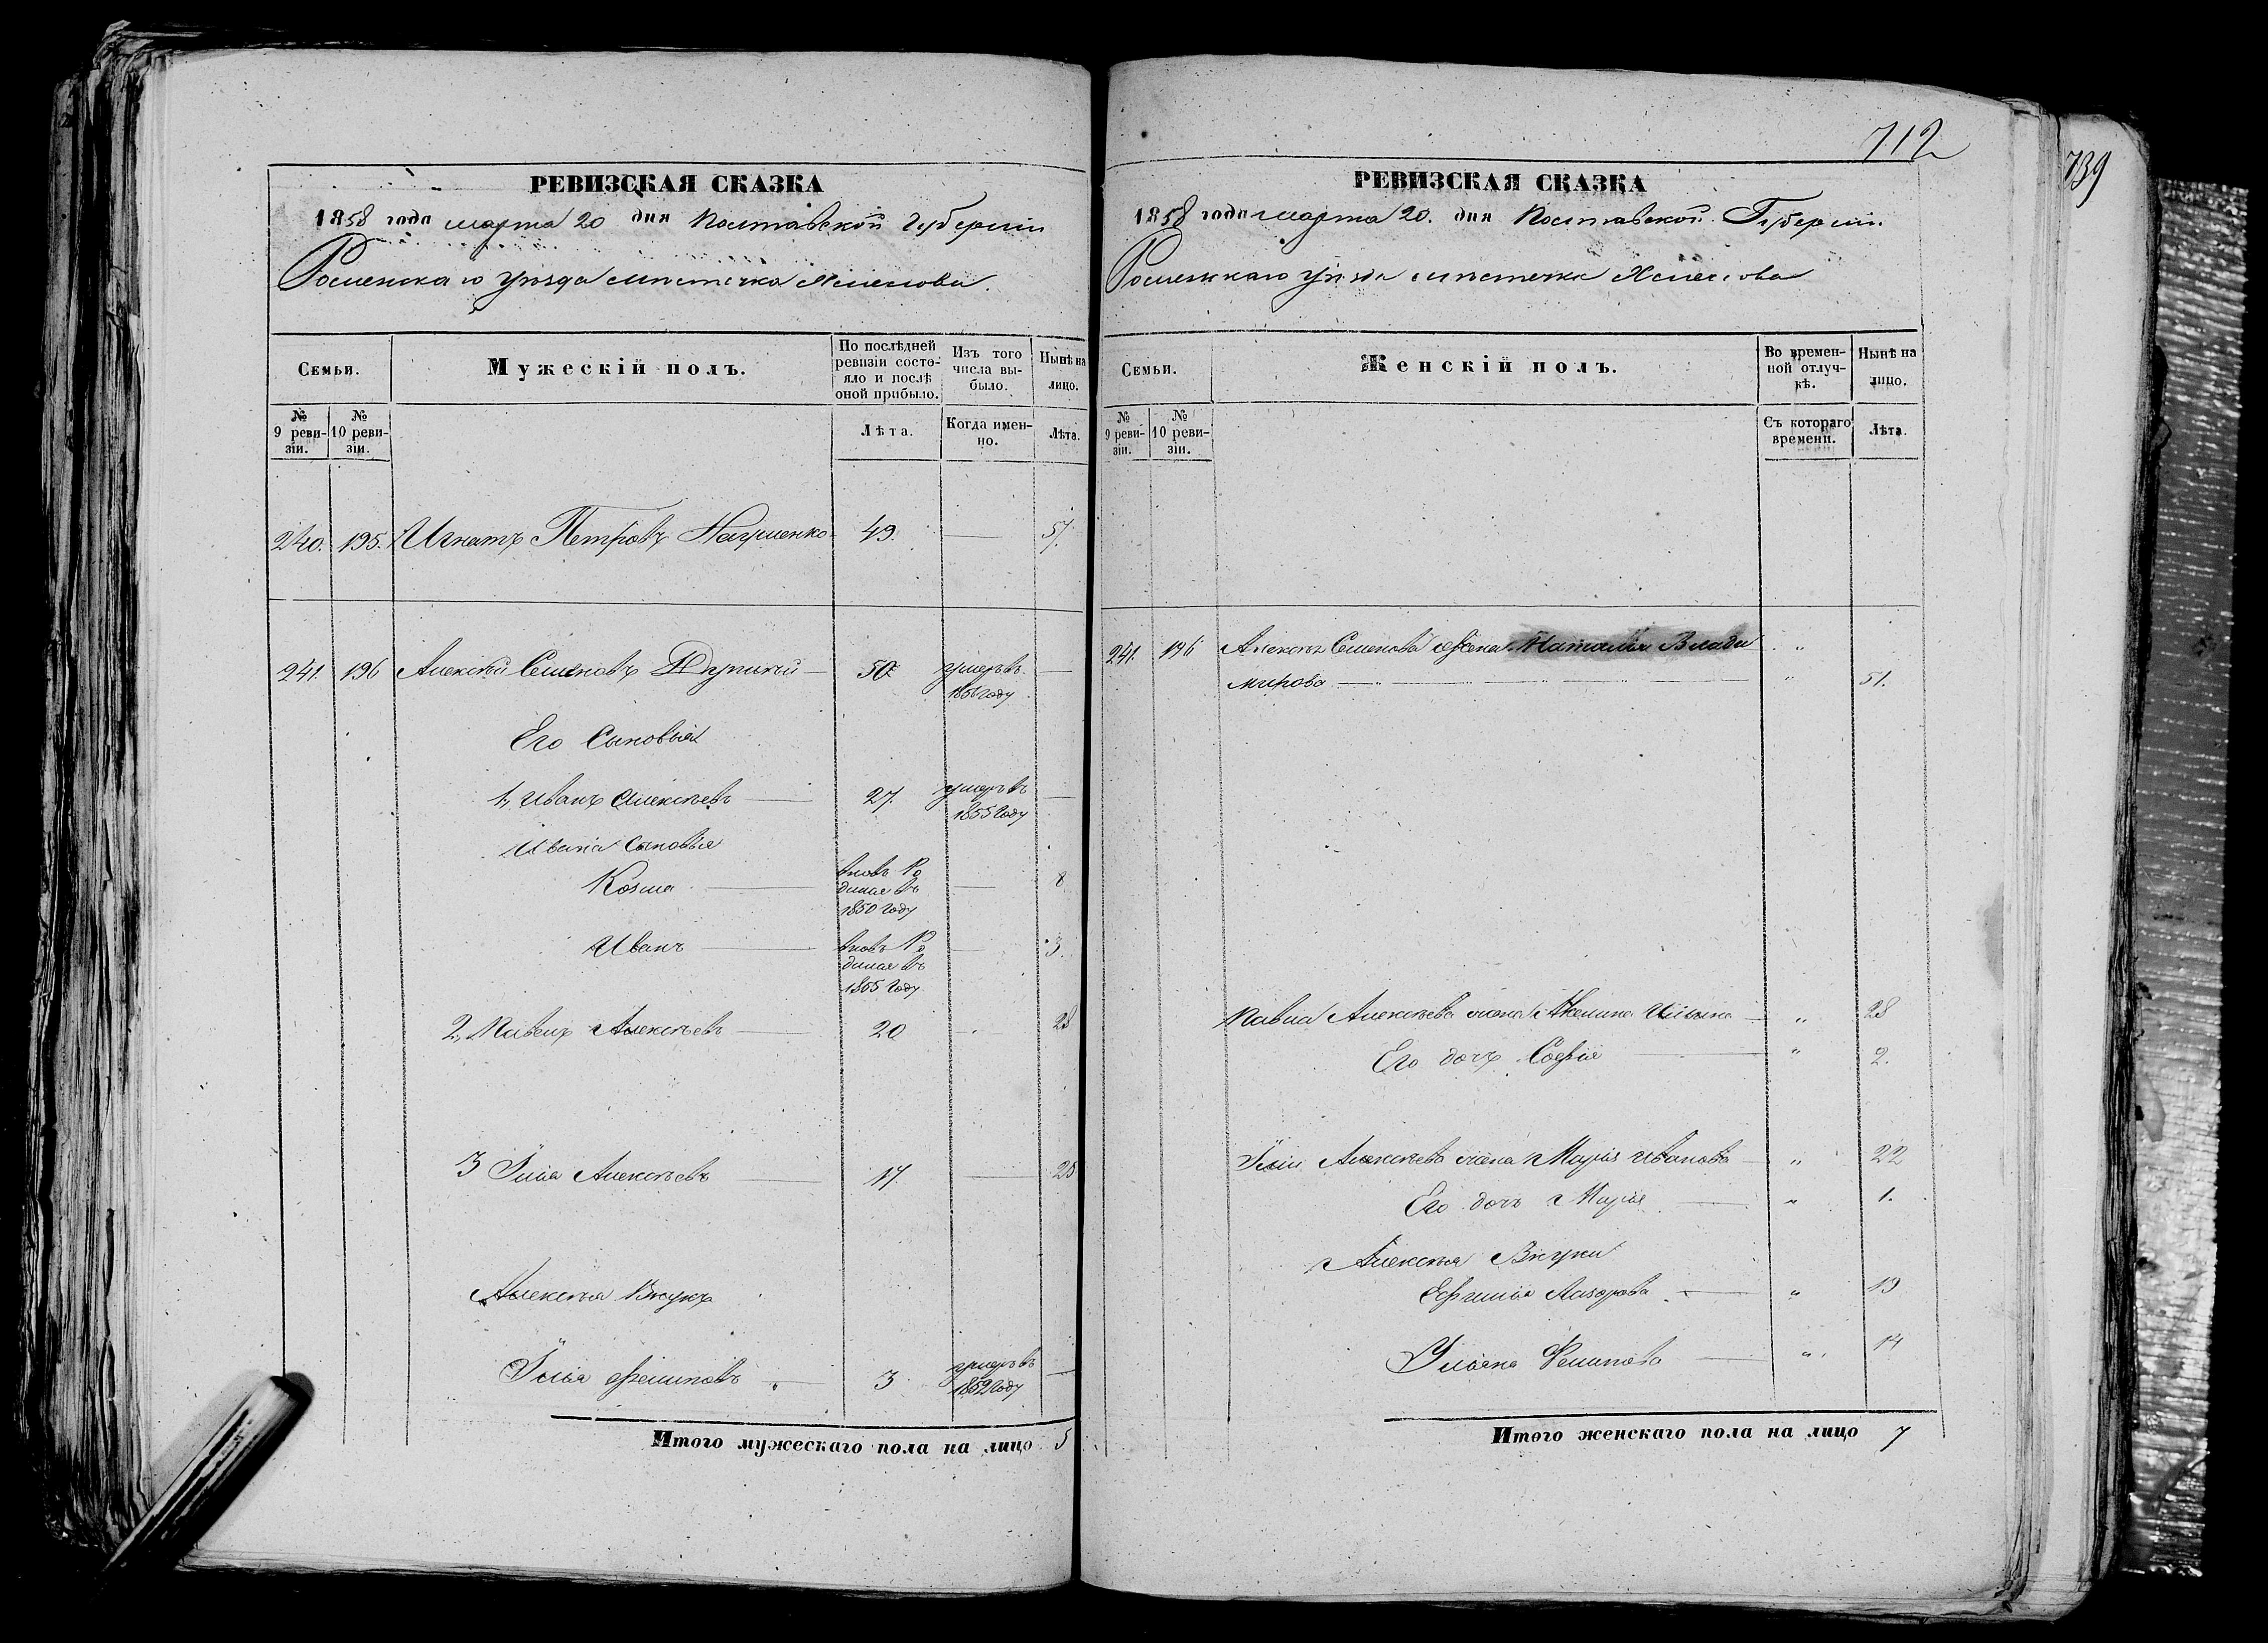 РЕВИЗСКАЯ СКАЗКА
1858 года марта 20 дня Полтавской Губерніи
Роменскаго уѣзда мѣстечка Хмелова.
Семьи.
Мужескій полъ.
По послѣдней ревизіи состояло и послѣ оной прибыло.
Изъ того числа выбыло.
Нынѣ на лицо.
№ 9 ревизіи.
№ 10 ревизіи.
Лѣта.
Когда именно.
Лѣта.
240. 195. Игнатъ Петровъ Науменко 49. 57.
241. 196 Алексѣй Семеновъ 50 умеръ въ
185 году
Его Сыновья
1, Иванъ Алексѣевъ 27. умеръ въ
1855 году
Ивана Сыновья
Козма вновь Ро
дился въ
1850 году
8
Иванъ вновь Ро
дился въ
1855 году
3.
2, Павелъ Алексѣевъ 20 28
3 Илья Алексѣевъ 17. 25
Алексѣя Внукъ
Илья Филиповъ 3 умеръ въ
1852 году
Итого мужескаго пола на лицо 5
712
РЕВИЗСКАЯ СКАЗКА
1858 года марта 20. дня Полтавской Губерніи.
Роменскаго уѣзда мѣстечка Хмелова
Семьи.
Женскій полъ.
Во временной отлучкѣ.
Нынѣ на лицо.
№ 9 ревизіи.
№ 10 ревизіи.
Съ котораго времени.
Лѣта.
241. 196 Алексѣя Семенова жена Наталья Влади
мирова 51.
Павла Алексѣева жена Акелина Ильина 28
Его дочь Софія 2.
Ильи Алексѣева жена Марія Иванова 22
Его дочь Марія 1.
Алексѣя Внуки
Ефимія Лазорова 19
Ульяна Филипова 14
Итого женскаго пола на лицо 7
739